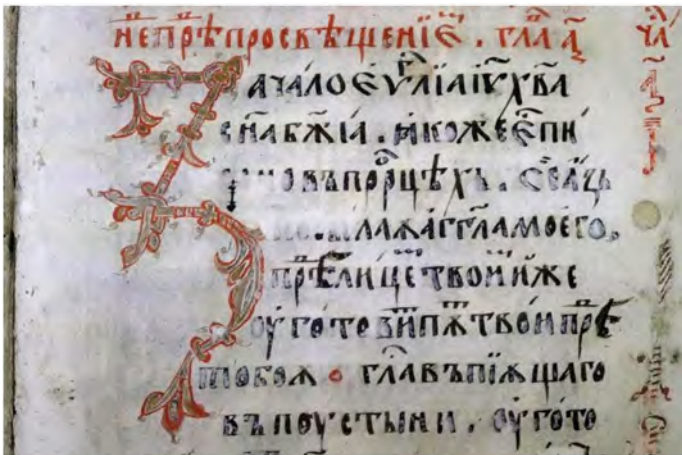 не́ прѣ просвѣщенїе . гла а҃
Зачало еѵⷢ҇лїа іѵ҃ хв҃а
сн҃а бж҃їа . ꙗкоже е҆ пи
но въ прⷪ҇рцѣхъ . се азъ
посылаѫ агг҃ла моего,
прѣⷣ лицеⷨ твоиⷨ иже
оуготовиⷮ пѫⷮ твои прѣⷣ
тобоѫ гла въпїѫщаго
въ поустыни . оугото